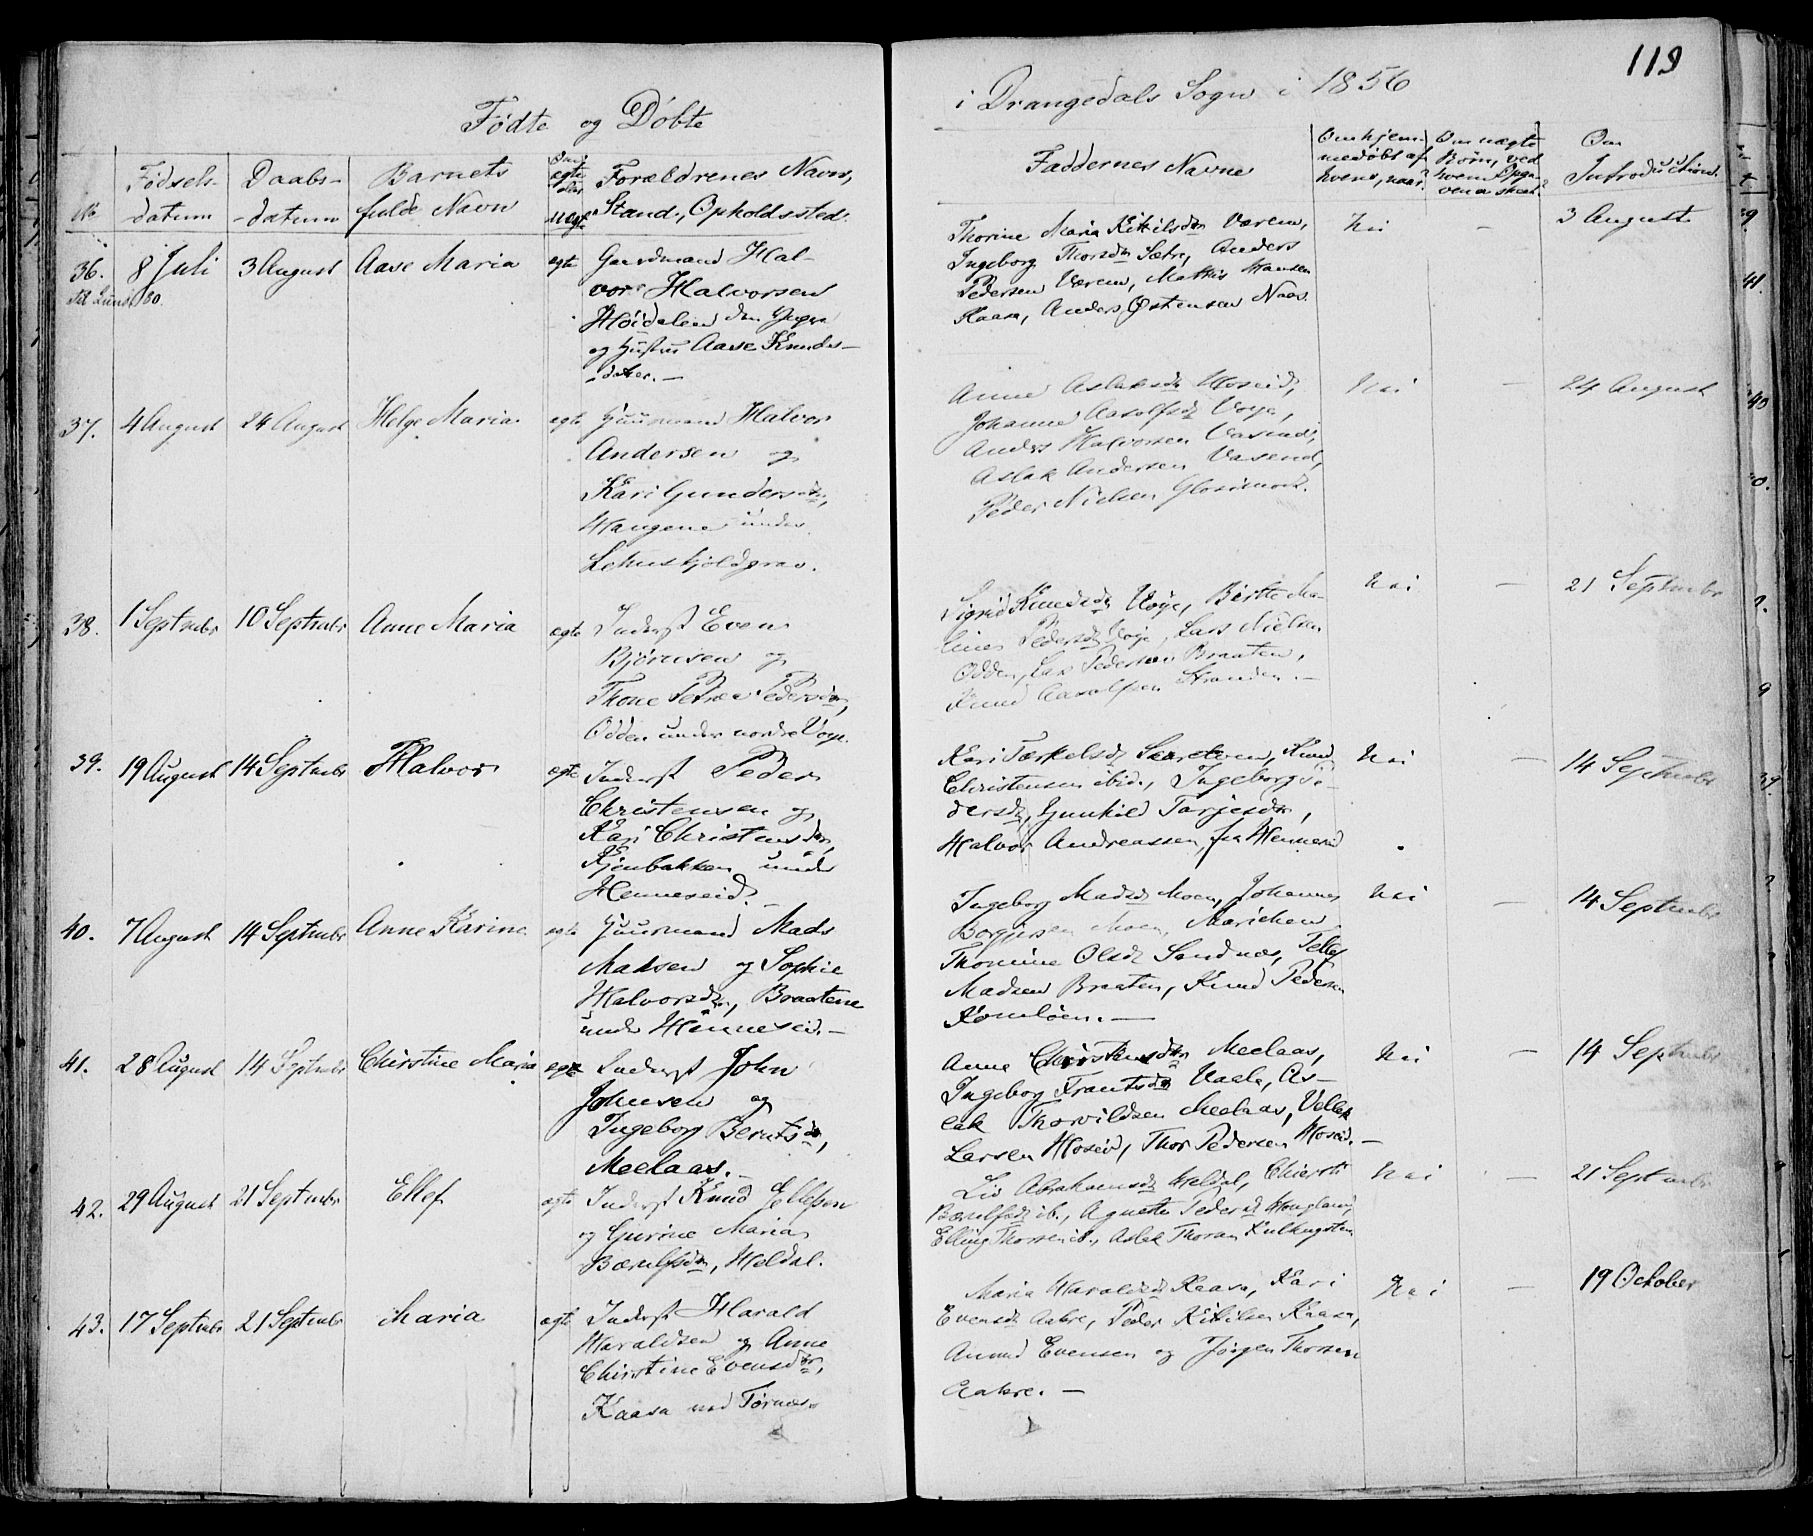 Fødte og Døbte
i Drangedals Sogn i 1856
119
No
Fødsels-
datum
Daabs-
-datum
Barnets
fulde Navn
Om
ægte
eller
uægte
Forældrenes Navn,
Stand, Opholdssted.
Faddernes Navne
Om hjem-
medøbt af
hvem, naar?
Om uægte
Børn, ved
hvem
Om
Introduction.
36.
8 Juli
3 August
Aase Maria
ægte
Gaardmand Hal-
vor Halvorsen
Høidalen den Yngre
og Hustru Aase Knuds-
-datter.-
Thorine Maria Kittilsdr Værem,
Ingeborg Thorsdr Sætre, Anders
Pedersen Værem, Mathis Hansen
Kaasa, Anders Østensen Naas.
Nei
-
3 August
37.
4 August
24 August
Helge Maria
ægte
Huusmand Halvor
Andersen og
Kari Gundersdr,
Haugene under
Anne Aslaksdr Hoseid,
Johanne Aasolfsdr Voje,
Anders Halvorsen Vasend,
Aslak Andersen Vasend,
Peder Nielsen
Nei
-
24 August
38.
1 Septmbr
10 Septmbr
Anne Maria
ægte
Inderst Even
Bjørnsen og
Thone Petrea Pedersdr,
Odden under nordre Voje.
Sigrid Knudsdr Voje, Birthe Ma-
Pedersdr Voje, Lars Nielsen
Odden, Lars Pedersen Braaten,
Knud Aasolfsen Stranden.-
Nei
-
21 Septmbr
39.
19 August
14 Septmbr
Halvor
ægte
Inderst Peder
Christensen og
Kari Christensdr,
under
Henneseid.
Kari Tærkelsdr Knud
Christensen ibid., Ingeborg Pe-
dersdr, Gunhild Tarjesdr,
Halvor Andreassen, fra Henneseid
Nei
-
14 Septmbr
40.
7 August
14 Septmbr
Anne Karine
ægte
Huusmand Mads
Madsen og Sophie
Halvorsdr, Braatene
under Henneseid.-
Ingeborg Madsdr Moen, Johannes
Borgersen Moen, Marichen
Thomine Olsdr Sandnæs, Tellef
Madsen Braaten, Knud Pedersen
Nei
-
14 Septmbr
41.
28 August
14 Septmbr
Christine Maria
ægte
Inderst John
Johnsen og
Ingeborg Berntsdr,
Meelaas.-
Anne Christensdr Meelaas,
Ingeborg Frantsdr Vaale, As-
lak Thorvildsen Meelaas, Vellek
Larsen Hoseid, Thor Pedersen Hoseid.-
Nei
-
14 Septmbr
42.
29 August
21 Septmbr
Ellef
ægte
Inderst Knud Ellefsen
og Gurine Maria
Bærulfsdr, Heldal.
Liv Abrahamsdr Heldal, Chirsti
Bærulfsdr ib., Agnethe Pedersdr
Elling Thorsen ib., Aslak
Nei
-
21 Septmbr
43.
17 Septmbr
21 Septmbr
Maria
ægte
Inderst Harald
Haraldsen og Anne
Christine Evensdr,
Kaasa ved Tørnæs.
Maria Haraldsdr Kaasa, Kari
Evensdr Aakre, Peder Kittilsen Kaasa,
Amund Evensen og Jørgen Thorsen
Aakre.-
Nei
-
19 October